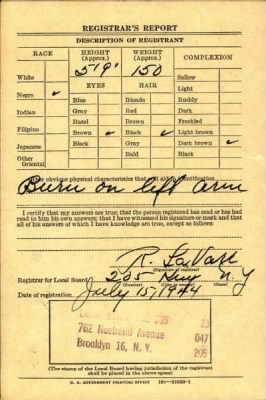 REGISTRAR'S REPORT
DESCRIPTION OF REGISTRANT
RACE
HEIGHT (Approx.)
WEIGHT (Approx.)
COMPLEXION
5'9" 150
White
Sallow
EYES HAIR
Light
Negro ✓
Blue Blonde Ruddy
Indian Gray Red Dark
Hazel Brown Freckled
Filipino
Brown ✓ Black ✓ Light brown ✓
Japanese Black Gray Dark brown
Other Oriental
Bald Black
Other obvious physical characteristics that will aid in identification
Burn on left arm
I certify that my answers are true; that the person registered has read or has had read to him his own answers; that I have witnessed his signature or mark and that all of his answers of which I have knowledge are true, except as follows:
R.
(Signature of registrar)
Registrar for Local Board 205 N.Y
Date of registration July 15, 1944
205
23
762 Nostrand Avenue 047
Brooklyn 16, N. Y. 205
(The stamp of the Local Board having jurisdiction of the registrant shall be placed in the above space)
U. S. GOVERNMENT PRINTING OFFICE